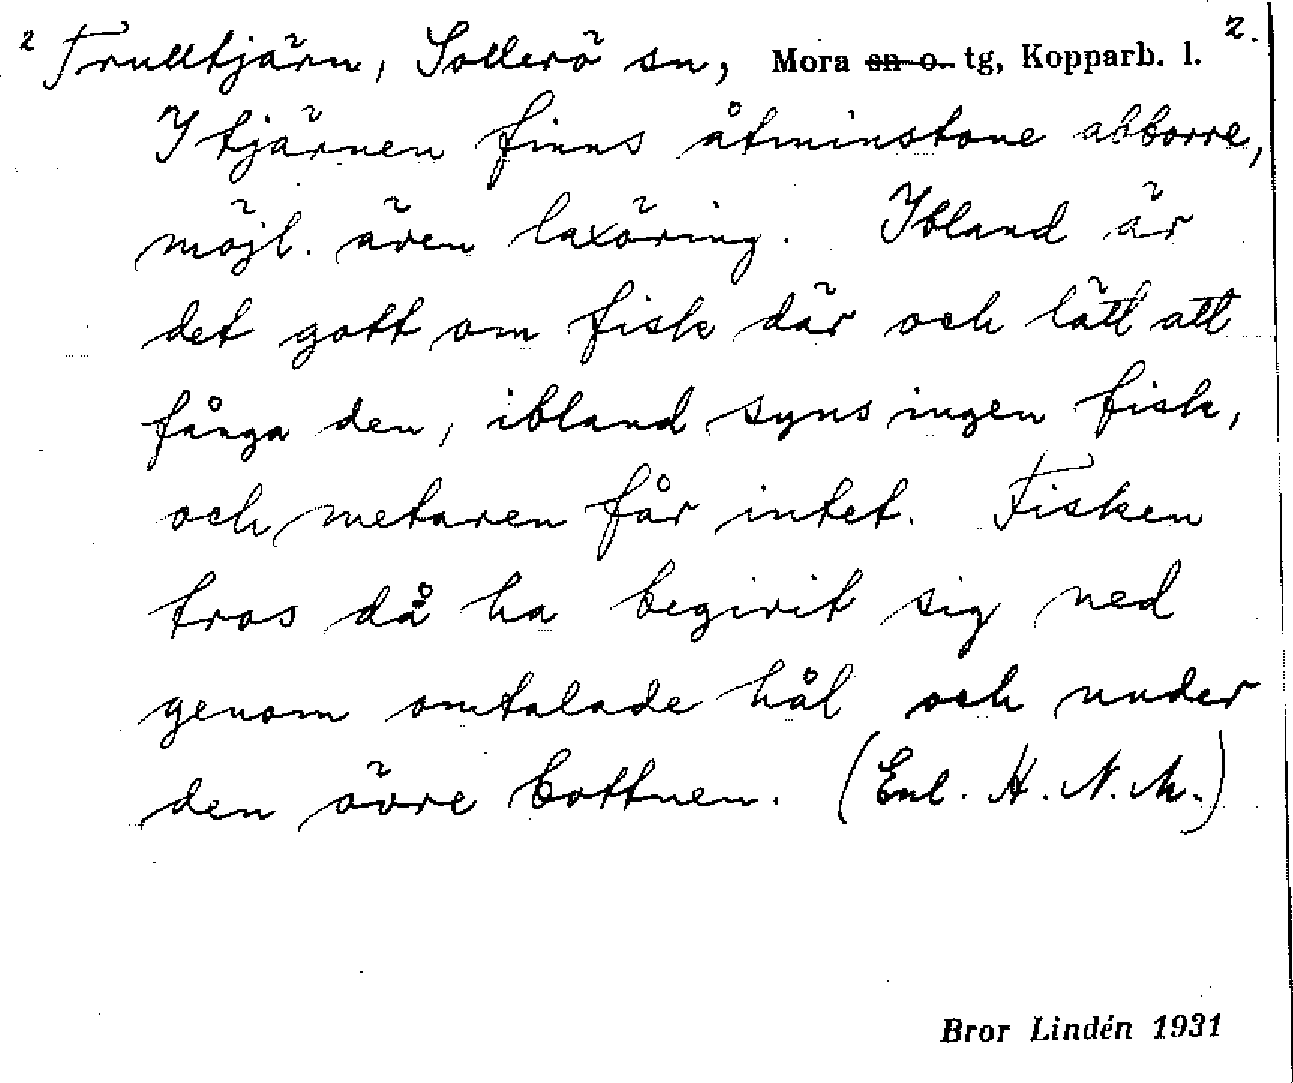 2 Trulltjärn, Sollerö sn, Mora sn o. tg, Kopparb. l. 2.
I tjärnen finns åtminstone abborre,
möjl. även laxöring. Ibland är
det gott om fisk där och lätt att
fånga den, ibland syns ingen fisk,
och metaren får intet. Fisken
tros då ha begivit sig ned
genom omtalade hål och under
den övre bottnen. (Enl. H. N. M.)
Bror Lindén 1931